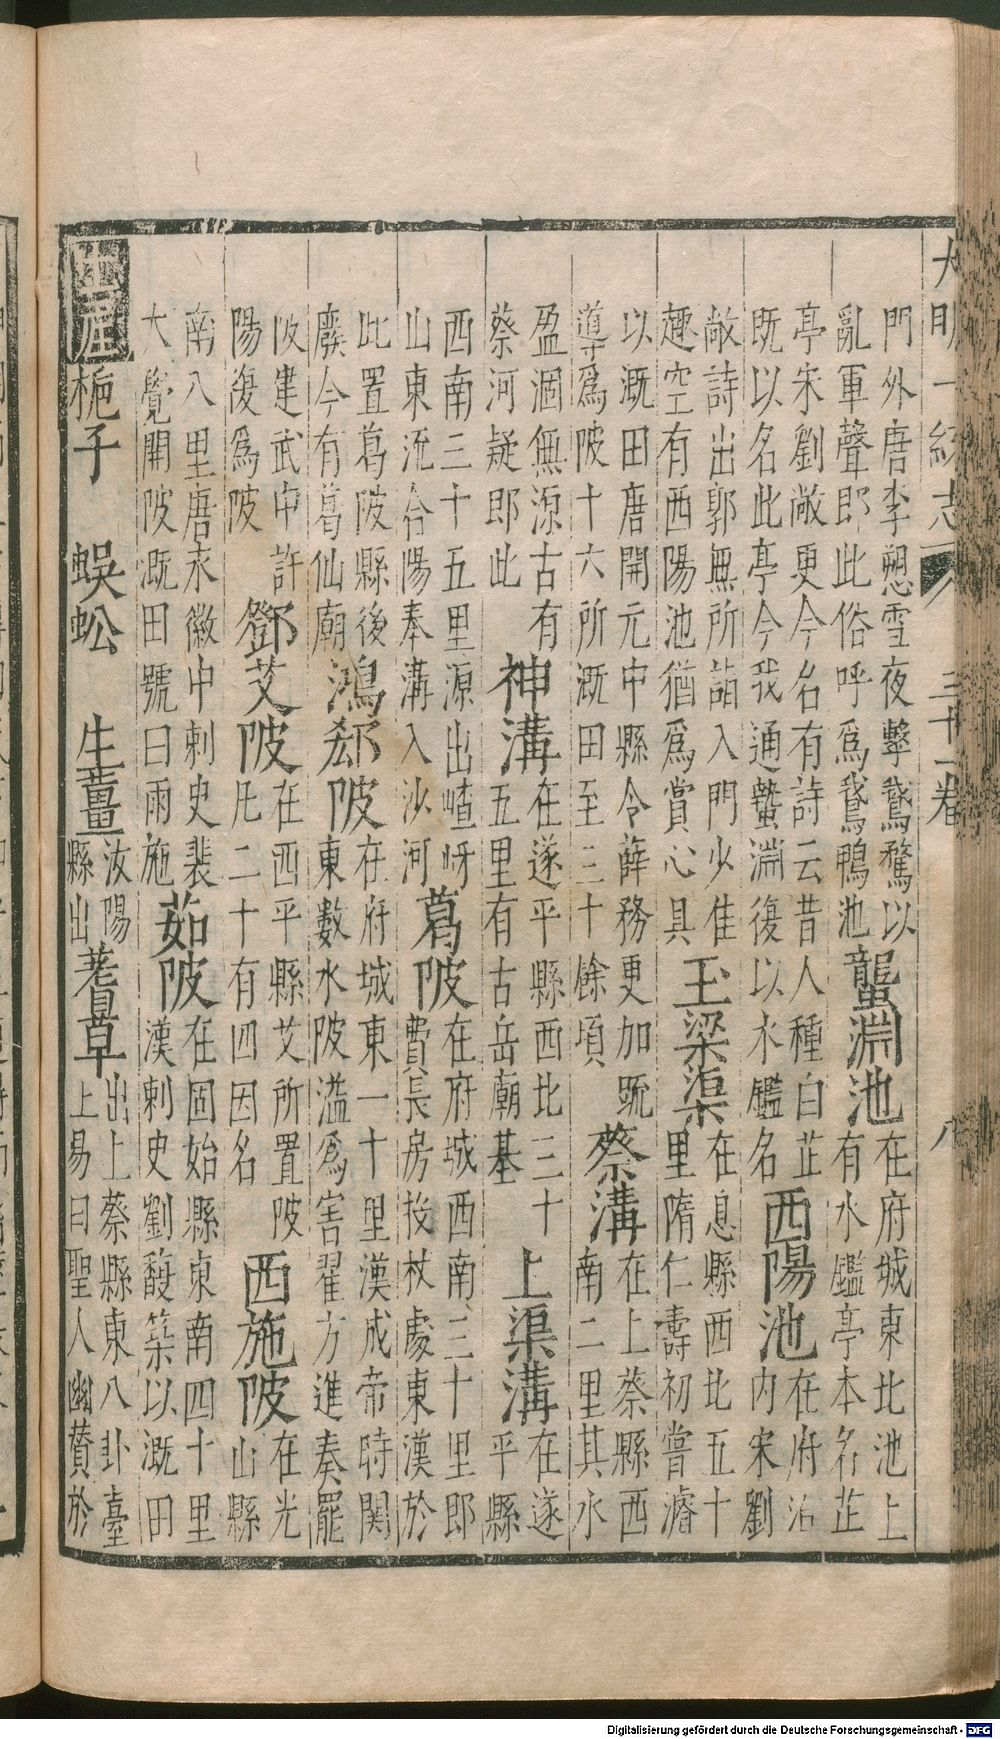 大明一統志 三十一卷 八
門外唐李愬雪夜擊鵝鶩以
亂軍聲即此俗呼爲鵝鴨池
蠪淵池
在府城東北池上
有水鑑亭本名芷
亭宋劉敞更今名有詩云昔人種白芷
既以名此亭今我通蟄淵復以水鑑名
西陽池
在府治
內宋劉
敞詩出郭無所詣入門少佳
趣空有西陽池猶爲賞心具
玉梁渠
在息縣西北五十
里隋仁壽初嘗濬
以溉田唐開元中縣令薛務更加䟽
導爲陂十六所溉田至三十餘頃
蔡溝
在上蔡縣西
南二里其水
盈涸無源古有
蔡河疑即此
神溝
在遂平縣西北三十
五里有古岳廟基
上渠溝
在遂
平縣
西南三十五里源出嵖岈
山東流合陽奉溝入沙河
葛陂
在府城西南三十里郎
費長房投杖處東漢於
此置葛陂縣後
廢今有葛仙廟
鴻郄陂
在府城東一十里漢成帝時關
東數水陂溢爲害翟方進奏罷
陂建武中許
陽復爲陂
鄧艾陂
在西平縣艾所置陂
凡二十有四因名
西施陂
在光
山縣
南八里唐永徽中刺史裴
大覺開陂溉田號曰雨施
茹陂
在固始縣東南四十里
漢刺史劉馥築以溉田
土產 梔子 蜈蚣 生薑
汝陽
縣出
蓍草
出上蔡縣東八卦臺
上易曰聖人幽贊於
Digitalisierung gefördert durch die Deutsche Forschungsgemeinschaft - DFG